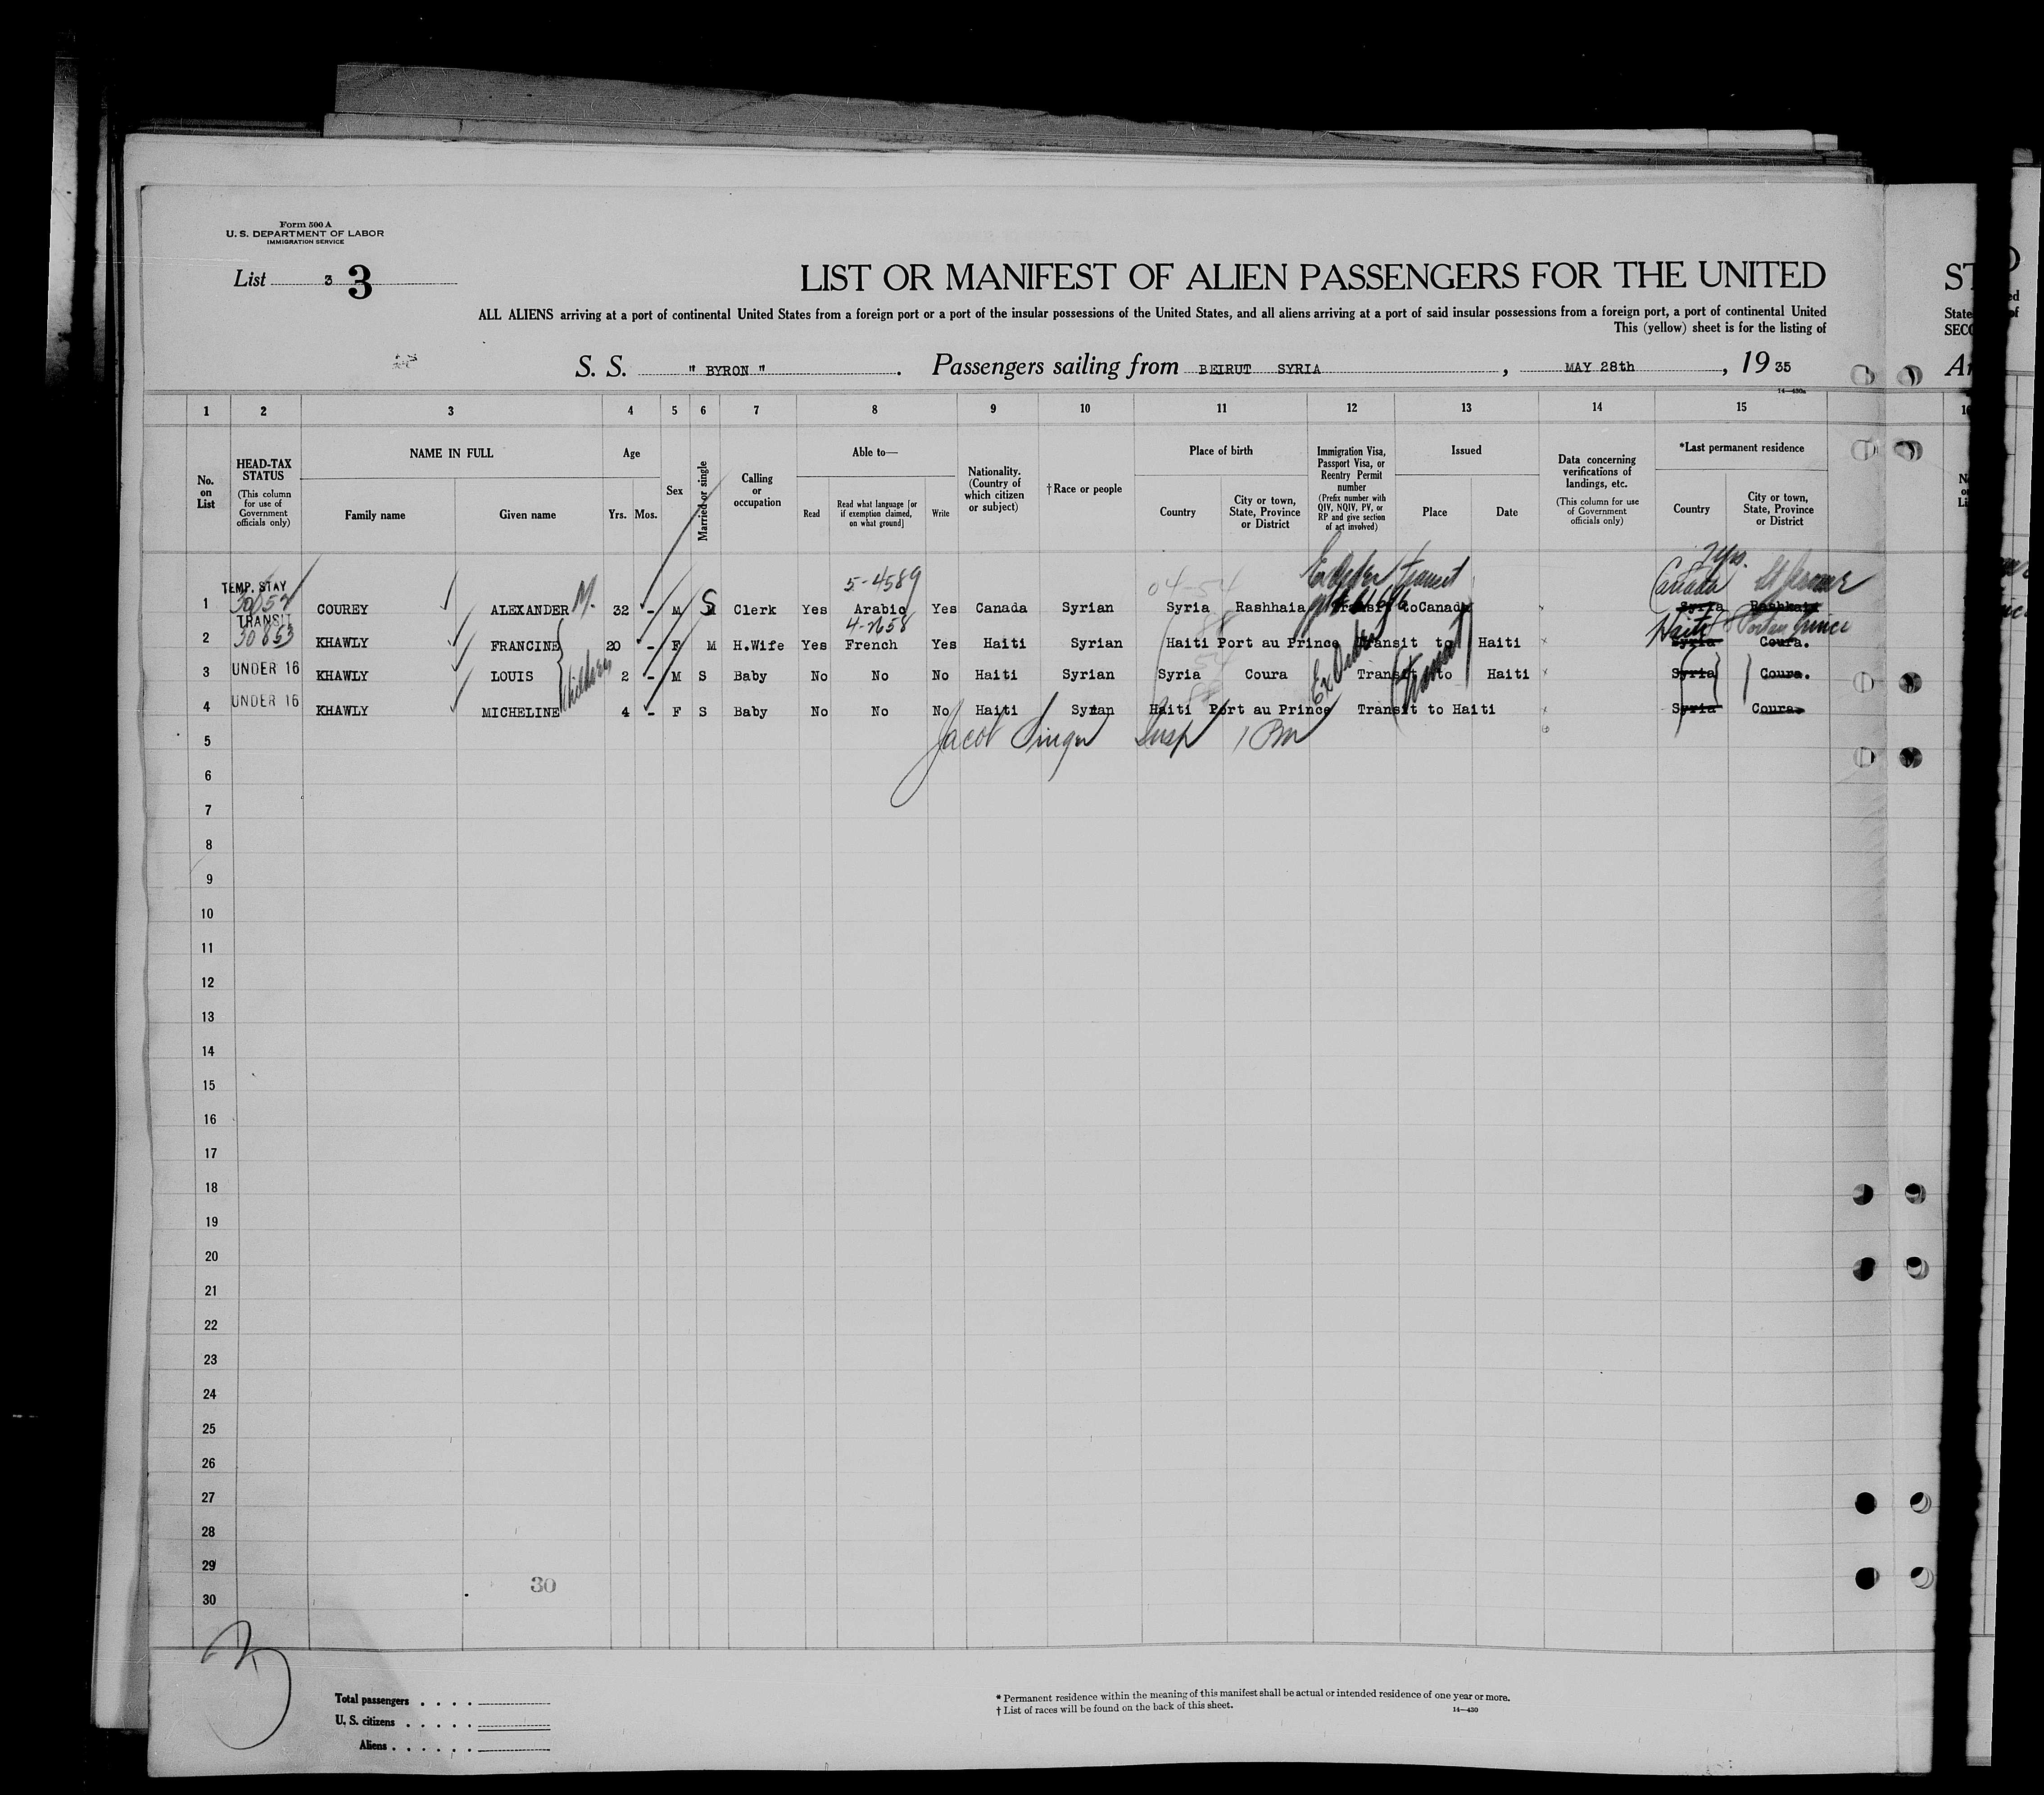 Form 500 A
U. S. DEPARTMENT OF LABOR
IMMIGRATION SERVICE
List 3 3
LIST OR MANIFEST OF ALIEN PASSENGERS FOR THE UNITED
ST
ALL ALIENS arriving at a port of continental United States from a foreign port or a port of the insular possessions of the United States, and all aliens arriving at a port of said insular possessions from a foreign port, a port of continental United
State
This (yellow) sheet is for the listing of
SECO
S. S. " BYRON " . Passengers sailing from BEIRUT SYRIA , MAY 28th , 19 35
14—430a
1 2 3 4 5 6 7 8 9 10 11 12 13 14 15
No. on List
HEAD-TAX STATUS (This column for use of Government officials only)
NAME IN FULL
Family name
Given name
Age
Yrs. Mos.
Sex
Married or single
Calling or occupation
Able to—
Read
Read what language [or if exemption claimed, on what ground]
Write
Nationality. (Country of which citizen or subject)
†Race or people
Place of birth
Country
City or town, State, Province or District
Immigration Visa, Passport Visa, or Reentry Permit number (Prefix number with QIV, NQIV, PV, or RP and give section of act involved)
Issued
Place
Date
Data concerning verifications of landings, etc. (This column for use of Government officials only)
*Last permanent residence
Country
City or town, State, Province or District
TEMP. STAY 5-4589 04-54 transit Canada St Jerome
1 COUREY ALEXANDER M. 32 - M S Clerk Yes Arabic Yes Canada Syrian Syria Rashhaia Transit to Canada Syria
TRANSIT 30853 Haiti Port au Prince
2 KHAWLY FRANCINE 20 - F M H.Wife Yes French Yes Haiti Syrian Haiti Port au Prince Transit to Haiti Syria Coura.
3 UNDER 16 KHAWLY LOUIS children 2 - M S Baby No No No Haiti Syrian Syria Coura Transit to Haiti Syria Coura.
4 UNDER 16 KHAWLY MICHELINE 4 - F S Baby No No No Haiti Syrian Haiti Port au Prince Transit to Haiti Syria Coura.
5 Jacob Singer Insp
6
7
8
9
10
11
12
13
14
15
16
17
18
19
20
21
22
23
24
25
26
27
28
29
30
30
3
Total passengers
U. S. citizens
Aliens
* Permanent residence within the meaning of this manifest shall be actual or intended residence of one year or more.
† List of races will be found on the back of this sheet.
14—430